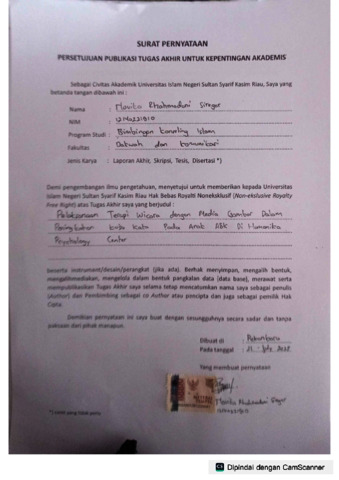 SURAT PERNYATAAN
PERSETUJUAN PUBLIKASI TUGAS AKHIR UNTUK KEPENTINGAN AKADEMIS
Sebagai Civitas Akademik Universitas Islam Negeri Sultan Syarif Kasim Riau, Saya yang
bertanda tangan dibawah ini :
Nama :
NIM :
Program Studi : Bimbingan Konseling Islam
Fakultas : Dakwah dan komunikasi
Jenis Karya : Laporan Akhir, Skripsi, Tesis, Disertasi *)
Demi pengembangan ilmu pengetahuan, menyetujui untuk memberikan kepada Universitas
Islam Negeri Sultan Syarif Kasim Riau Hak Bebas Royalti Noneksklusif (Non-eksclusive Royalty
Free Right) atas Tugas Akhir saya yang berjudul :
Pelaksanaan Terapi Wicara dengan Media Gambar Dalam
kosa kata Pada Anak ABK Di Humanika
Psychology Center
beserta instrument/desain/perangkat (jika ada). Berhak menyimpan, mengalih bentuk,
mengalihmediakan, mengelola dalam bentuk pangkalan data (data base), merawat serta
mempublikasikan Tugas Akhir saya selama tetap mencatumkan nama saya sebagai penulis
(Author) dan Pembimbing sebagai co Author atau pencipta dan juga sebagai pemilik Hak
Cipta.
Demikian pernyataan ini saya buat dengan sesungguhnya secara sadar dan tanpa
paksaan dari pihak manapun.
Dibuat di : Pekanbaru
Pada tanggal :
Yang membuat pernyataan
CS Dipindai dengan CamScanner